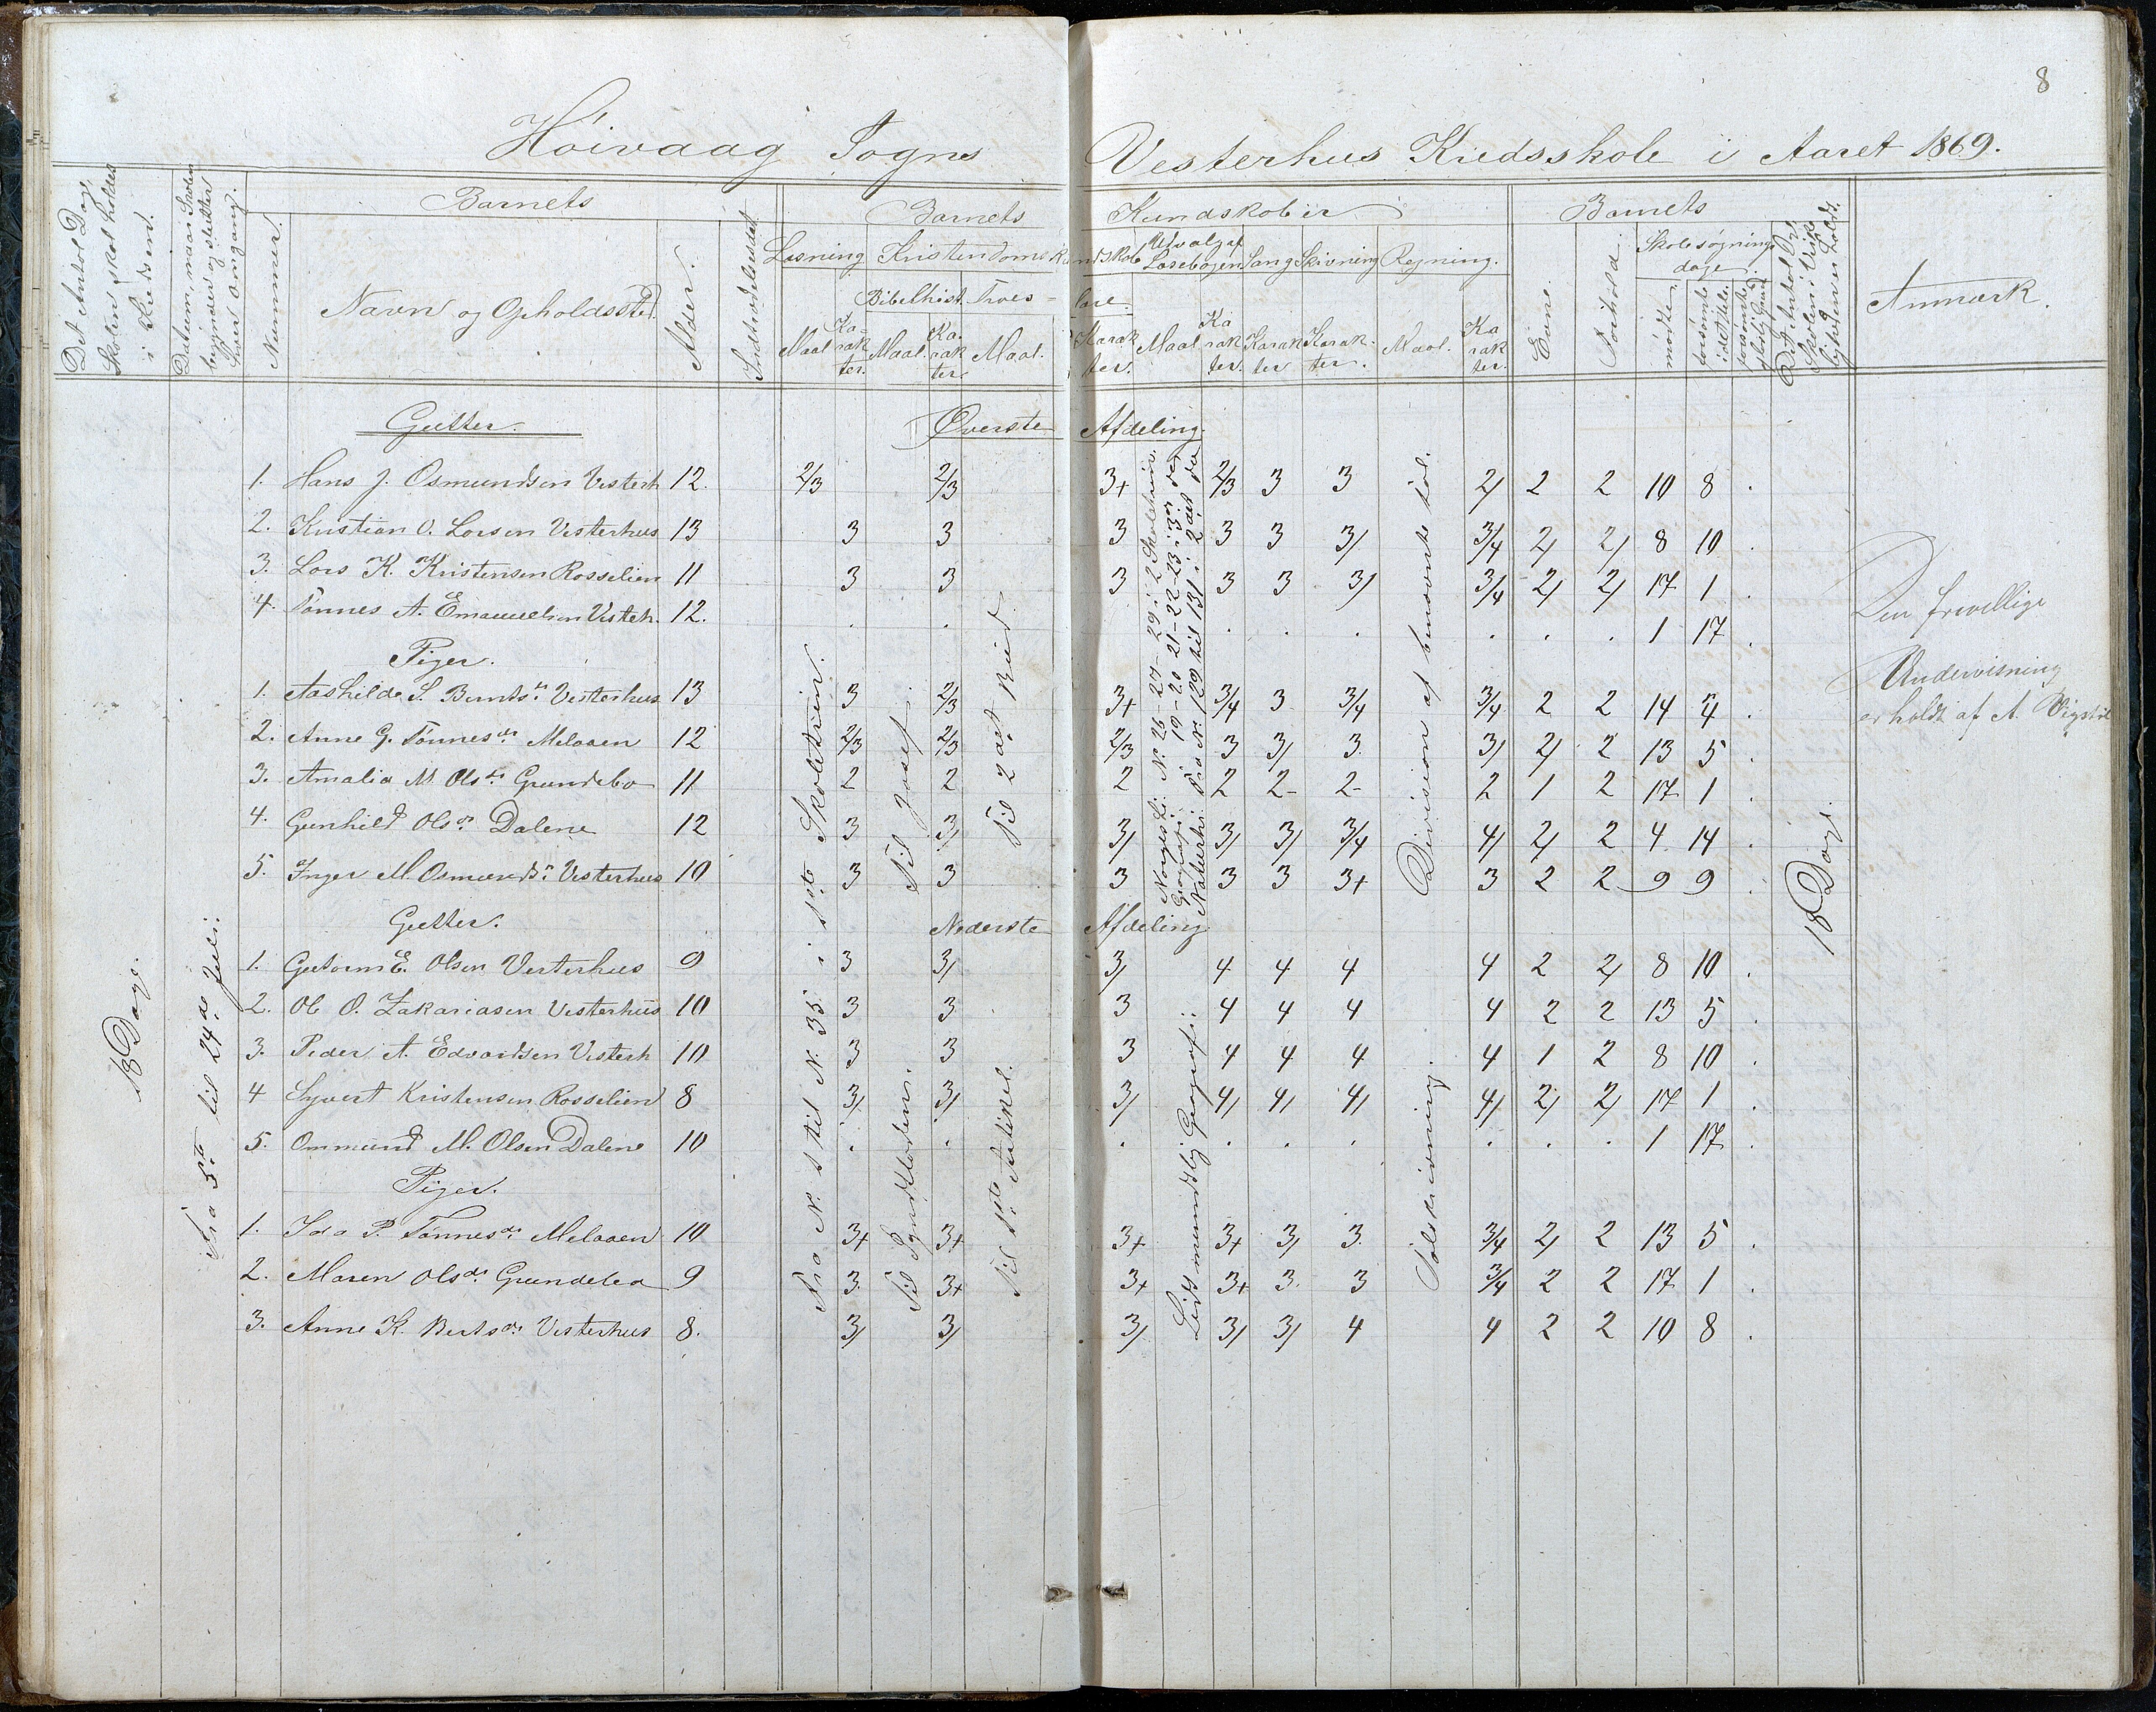 8
Høivaag Sogns Vesterhus Kredsskole i Aaret 1869.
Det Antal Dage, Skolen skal holdes i Kredsen.
Datum, naar Skolen begynder og slutter hver Omgang.
Nummer.
Barnets
Navn og Opholdssted.
Alder.
Indtrædelsesdat.
Barnets Kundskaber
Læsning
Maal
Karakter.
Kristendomskundskab
Bibelhist.
Maal.
Karakter
Troeslære
Maal.
Karakter.
Udvalg af Læsebogen
Maal
Karakter.
Sang
Karakter
Skrivning
Karakter.
Regning.
Maal.
Karakter.
Barnets
Evne.
Forhold.
Skolesøgningsdage.
mødte.
forsømte i det Hele.
forsømte af lovlig Grund
Det Antal Dage Skolen i Virkeligheden er holdt.
Anmærk.
Gutter. Øverste Afdeling.
1. Hans J. Osmundsen Vesterh 12. 2/3 2/3 3+ 2/3 3 3 2/ 2 2 10 8 .
2. Kristian O. Larsen Vesterhus 13 3 3 3 3 3 3/ 3/4 2/ 2/ 8 10 .
3. Lars K. Kristensen Rosselien 11 3 3 3 3 3 3/ 3/4 2/ 2/ 17 1 .
4. Tønnes A. Emanuelsen Vesterh. 12. . . . . . . . . 1 17 .
Piger.
1. Aashilda S. Berntsdr. Vesterhus 13 3 2/3 3+ 3/4 3 3/4 3/4 2 2 14 4 .
2. Anne G. Tønnesdr. Melaaen 12 2/3 2/3 2/3 3 3/ 3. 3/ 2/ 2 13 5 .
3. Amalia M. Olsdr. Grundebo 11 2 2 2 2 2- 2- 2 1 2 17 1 .
4. Gunhild Olsdr. Dalene 12 3 3/ 3/ 3/ 3/ 3/4 4/ 2/ 2 4 14 .
5. Inger M. Osmundsdr. Vesterhus 10 3 3 3 3 3 3+ 3 2 2 9 9 .
Gutter. Nederste Afdeling
1. Gutorm E. Olsen Vesterhus 9 3 3/ 3/ 4 4 4 4 2 2/ 8 10 .
2. Ole O. Zakariasen Vesterhus 10 3 3 3 4 4 4 4 2 2 13 5 .
3. Peder A. Edvardsen Vesterh 10 3 3 3 4 4 4 4 1 2 8 10 .
4 Syvert Kristensen Rosselien 8 3/ 3/ 3/ 4/ 4/ 4/ 4/ 2/ 2/ 17 1 .
5. Ommund M. Olsen Dalene 10 . . . . . . . . . 1 17 .
Piger.
1. Ida P. Tønnesdr. Melaaen 10 3+ 3+ 3+ 3+ 3/ 3. 3/4 2/ 2 13 5 .
2. Maren Olsdr. Grundebo 9 3. 3+ 3+ 3+ 3. 3 3/4 2 2 17 1 .
3. Anne K. Berntsdr. Vesterhus 8. 3/ 3/ 3/ 3/ 3/ 4 4 2 2 10 8 .
18 Dage.
Fra 5te til 24de Juli.
Fra N. 1 til N. 35 i 1ste Skoletrin.
Til Josef.
Til Syndfloden.
Til 2det Bud
Til 1ste Artikel.
Norges Hi. Nr. 26-27-29 i 2 Skoletrin.
Geografi: 19-20 21-22-23 i 3die
Naturhi: Fra Nr. 129 til 131 i 2det
Lidt mundtlig Geografi:
Division af benævnte Tal.
Talskrivning.
18 Dage.
Den frivillige
Undervisning
er holdt af A. Vigstøl